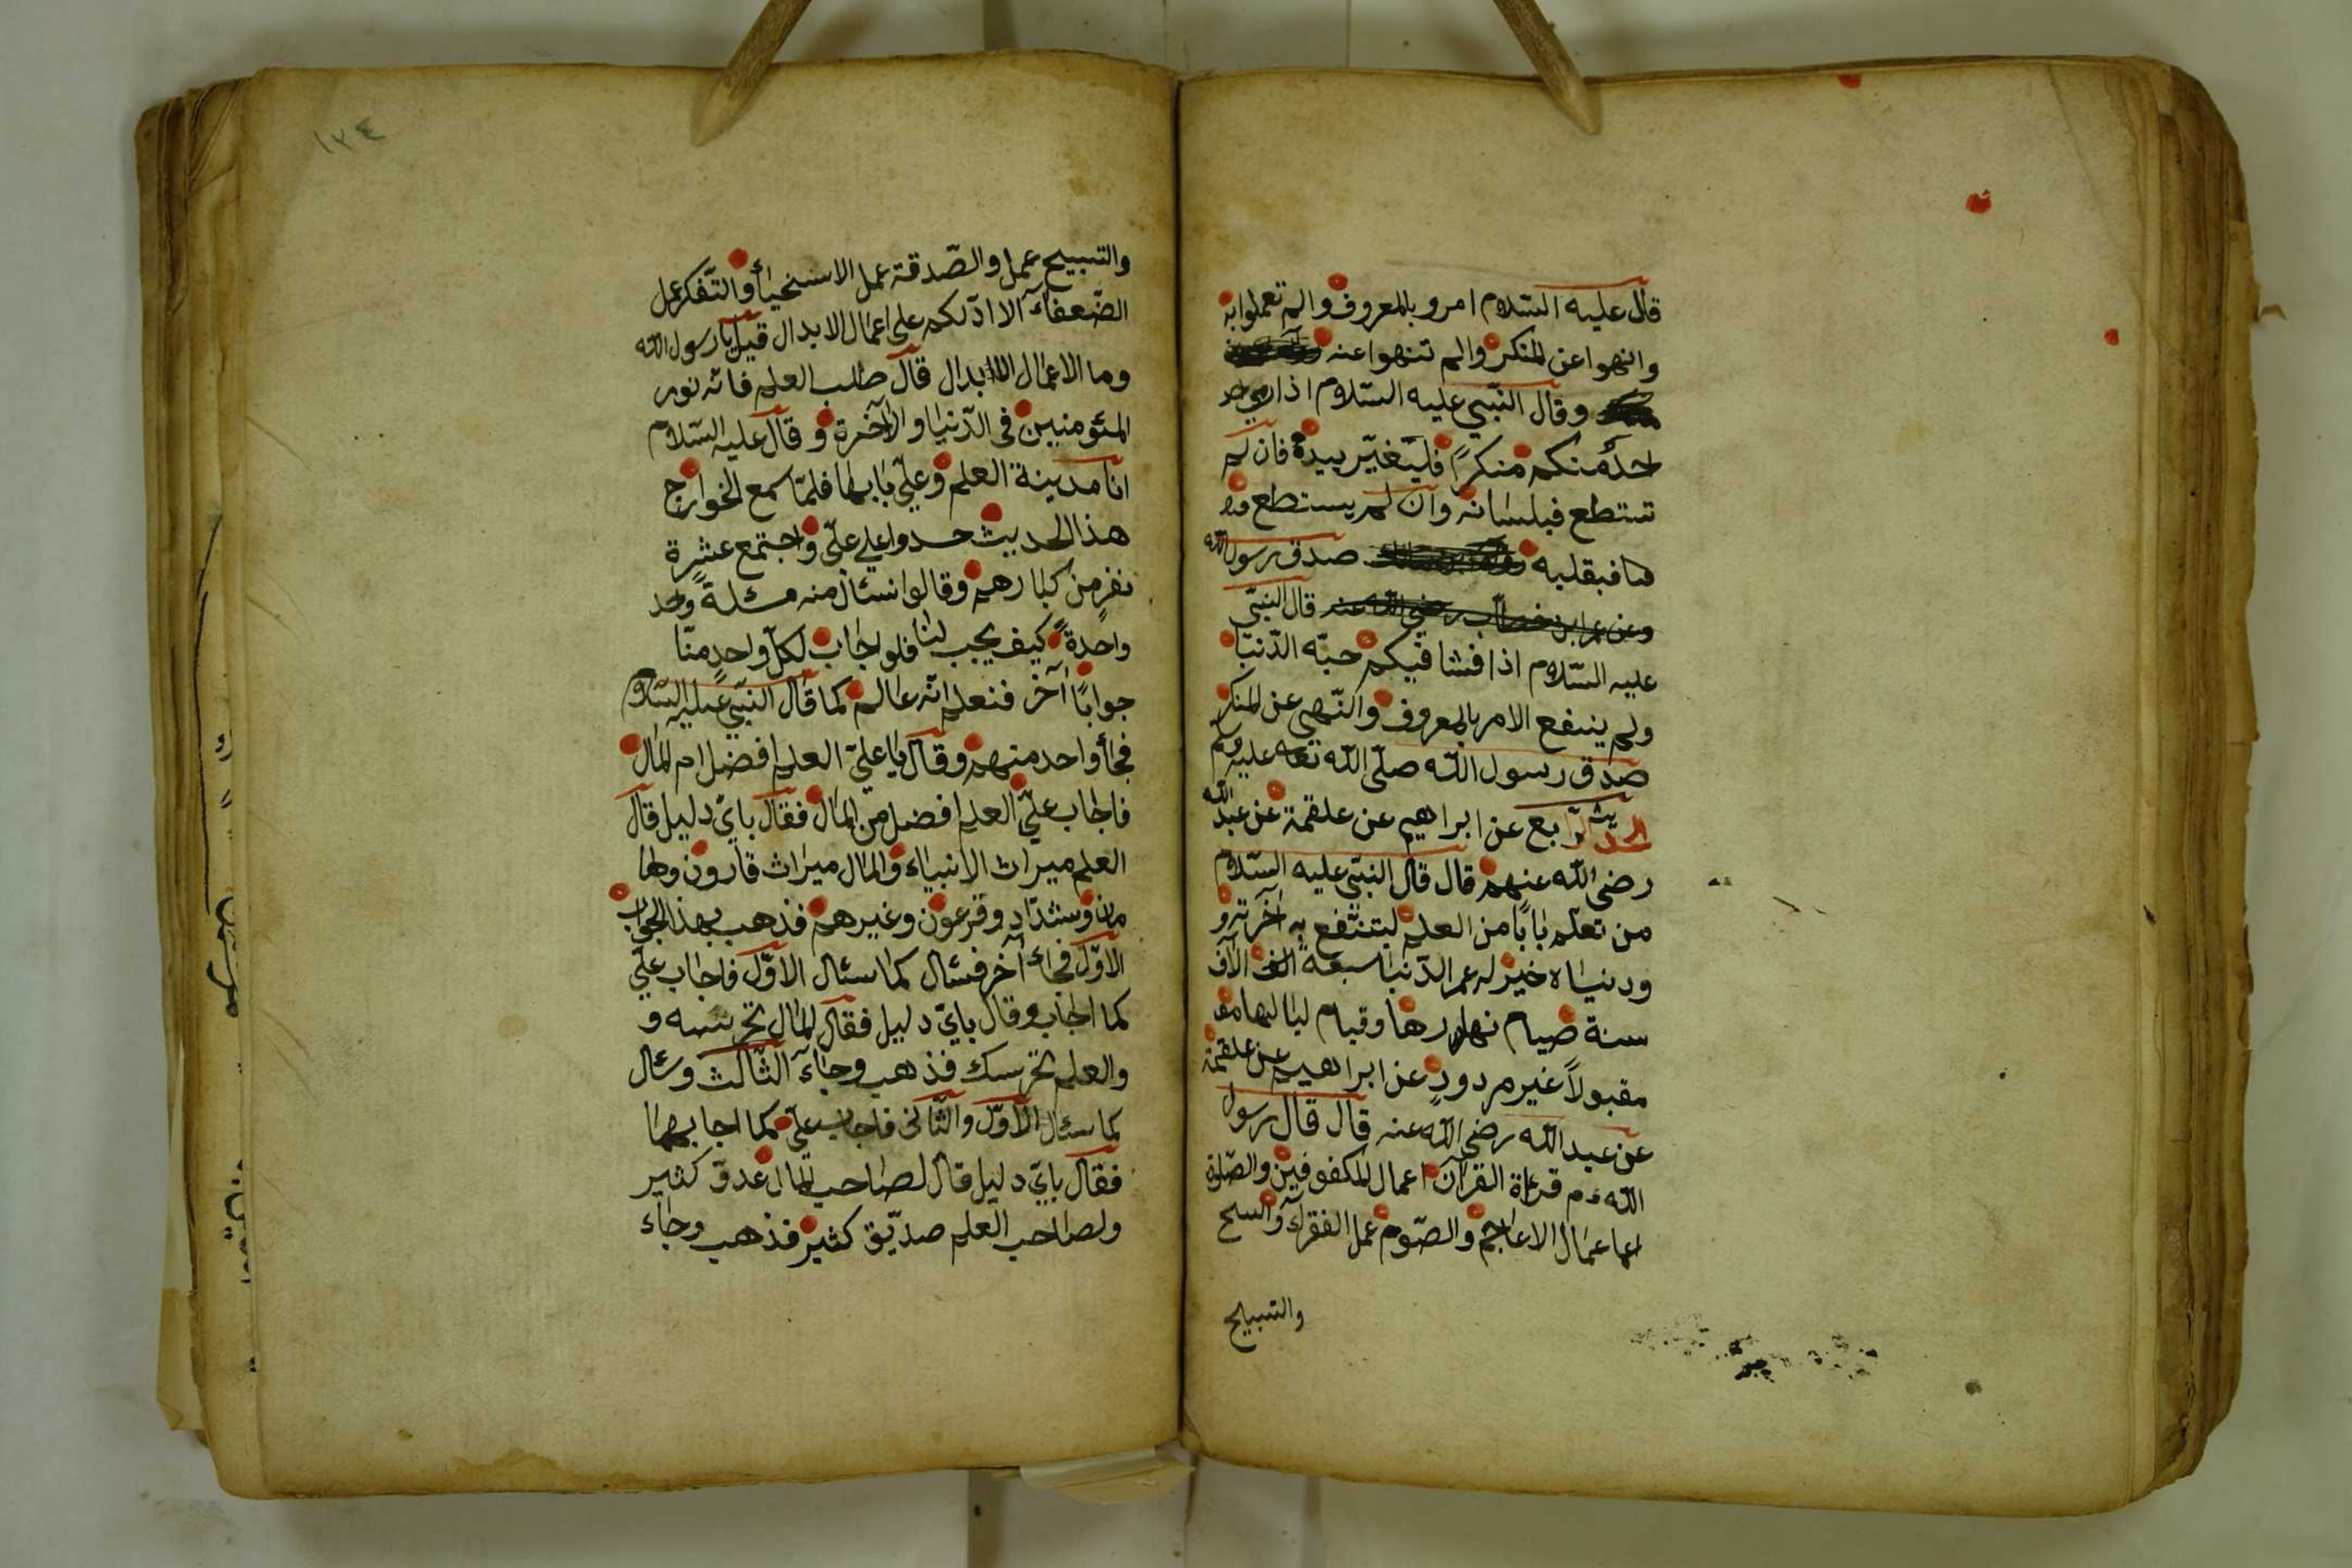 قال عليه السّلام امرو بالمعروف والم تعملوا به
وانهوا عن المنكر والم تنهوا عنه
وقال النّبي عليه السّلام اذا
احدٌ منكم منكرًا فليغيّر بيده فان لم
تستطع فبلسانه وان لم يستطع
فبقلبه صدق رسول الله
وعن عمر ابن خطاب رضي الله عنه قال النّبيّ
عليه السّلام اذا فشا فيكم حبّه الدّنيا
ولم ينفع الامر بالمعروف والنّهي عن المنكر
صدق رسول الله صلّى الله تعا عليه وسلم
الحديث الرّابع عن ابراهيم عن علقمة عن عبد الله
رضى الله عنهم قال قال النّبي عليه السّلام
من تعلّم بابًا من العلم لينتفع به آخرته و
ودنياه خير له عمر الدّنيا سبعة الف الآف
سنة صيام نهارها وقيام لياليها مقـ
مقبولاً غير مردودٍ عن ابراهيم عن علقمة
عن عبد الله رضى الله عنه قال قال رسول
الله ءم قرءاة القرآن اعمال المكفوفين والصّلوة
اعمال الاعاجم والصّوم عمل الفقرآء
والتسبيح
١٣٤
والتسبيح عمل والصّدقة عمل الاسنخيأ والتّفكر عمل
الضّعفآء الا ادّلكم على اعمال الابدال قيل يا رسول الله
وما الاعمال الابدال قال طلب العلم فانّه نور
المئومنين فى الدّنيا والآخرة وقال عليه السّلام
انا مدينة العلم وعليّ بابها فلمّا سمع الخوارج
هذا الحديث حسدوا على عليّ واجتمع عشرة
نفرٍ من كبارهم وقالوا نسئال منه مسئلةً واحد
واحدةً كيف يجب لنا فلو اجاب لكلّ واحدٍ منّا
جوابًا آخر فنعلم انّه عالم كما قال النّبي عليه السّلام
فجأ واحد منهم وقال يا عليّ العلم افضل ام المال
فاجاب عليّ العلم افضل من المال فقال بايّ دليل قال
العلم ميراث الانبياء والمال ميراث قارون وها
مان وشدّاد وفرعون وغيرهم فذهب بهذا الجواب
الاوّل فجاء آخر فسئال كما سئال الاوّل فاجاب عليّ
كما اجاب وقال بايّ دليل فقال المال تحرسه و
والعلم تحرسك فذهب وجآء الثّالث وسئال
كما سئال الاوّل والثّانى فاجاب عليّ كما اجابهما
فقال بايّ دليل قال لصاحب المال عدوّ كثير
ولصاحب العلم صدّيق كثير فذهب وجاء